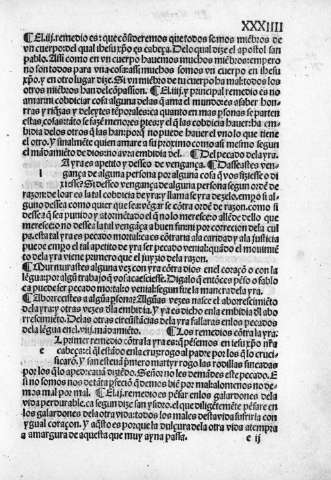 XXXIIII
¶ El .iij. remedio es: que cõsideremos que todos somos miẽbros de
vn cuerpo: del qual ihesu xpõ es cabeça. Delo qual dize el apostol san
pablo. Assi como en vn cuerpo hauemos muchos miẽbros: empero
no son todos para vna cosa: assi muchos somos vn cuerpo en ihesu
xpõ. y en otro lugar dize. Si vn miẽbro de tu cuerpo ha mal: todos los
otros miẽbros han del cõpassion. ¶ El .iiij. y principal remedio es no
amar ni cobdiciar cosa alguna delas q̃ ama el mundo: como es saber hon
rras y riq̃zas y deleytes tẽporales: ca quanto en mas p̃sonas se parten
estas cosas: tãto se faze menor es pte: y el q̃ las cobdicia
embidia delos otros q̃ las han: porq̃ no puede hauer el vno lo que tiene
el otro. Y finalmẽte quien amare a su proximo como asi mesmo segun
el mãdamiẽto de dios: no aura embidia del. ¶ Del pecado dela yra.
Ayra es apetito y desseo de vengança. ¶ Desseastes ven-
i gança de alguna persona por alguna cosa q̃ vos fiziesse o di
xiesse? Si desseo vengança de alguna persona segun ordẽ de
razon: de loar es la tal cobdicia de yra: y llama se yra de zelo. empo si al-
guno dessea como quier que sea vẽgar se cõtra ordẽ de razon. como si
desse a q̃ sea punido y atormẽtado el q̃ no lo merescio allẽde dello que
merescio no dessea: la tal vengança a buen fin: ni por correcion dela cul
pa. esta tal yra es pecado mortal: ca es cõtraria ala caridad y ala justicia
puede empo el tal apetito de yra ser pecado venial: quãdo el mouimiẽ
to dela yra viene primero que el juyzio dela razon.
¶ Murmurastes alguna vez con yra cõtra dios en el coraçõ o con la
lẽgua: por algũ trabajo q̃ vos acaesciesse. Digalo q̃ entõces peso o fablo
ca puede ser pecado mortal o venial segun fue la manera dela yra.
¶ Aborrescistes a algũa psona? Algũas vezes nasce el aborrescimiẽto
dela yra: y otras vezes dla embidia. Y ya es dicho enla embidia dl abo
rrescimiẽto. Delas otras circũstãcias dela yra fallaras enlos pecados
dela lẽgua enel .viij. mãdamiẽto. ¶ Los remedios cõtra la yra.
El primer remedio cõtra la yra es: q̃ pẽsemos en iesu xpõ nr̃a
e cabeça: el q̃l estãdo enla cruz rogo al padre por los q̃ lo cruci-
ficarõ. Y san esteuã p̃mero martyr rogo las rodillas fincadas
por los q̃ lo apedreauã diziẽdo. Señor no les demãdes este pecado. E
si no somos nos de tãta pfeciõ q̃ demos biẽ por mal: alo menos no de-
mos mal por mal. ¶ El .ij. remedio es pẽsar enlos galardones dela
vida perdurable. ca segun dize san ysidro. el que diligẽtemẽte pẽsare en
los galardones dela otra vida: todos los males desta vida sufrirla con
ygual coraçon. Y aq̃sto es porque la dulçura dela otra vida atempra
a amargura de aquesta que muy ayna passa.
e ij